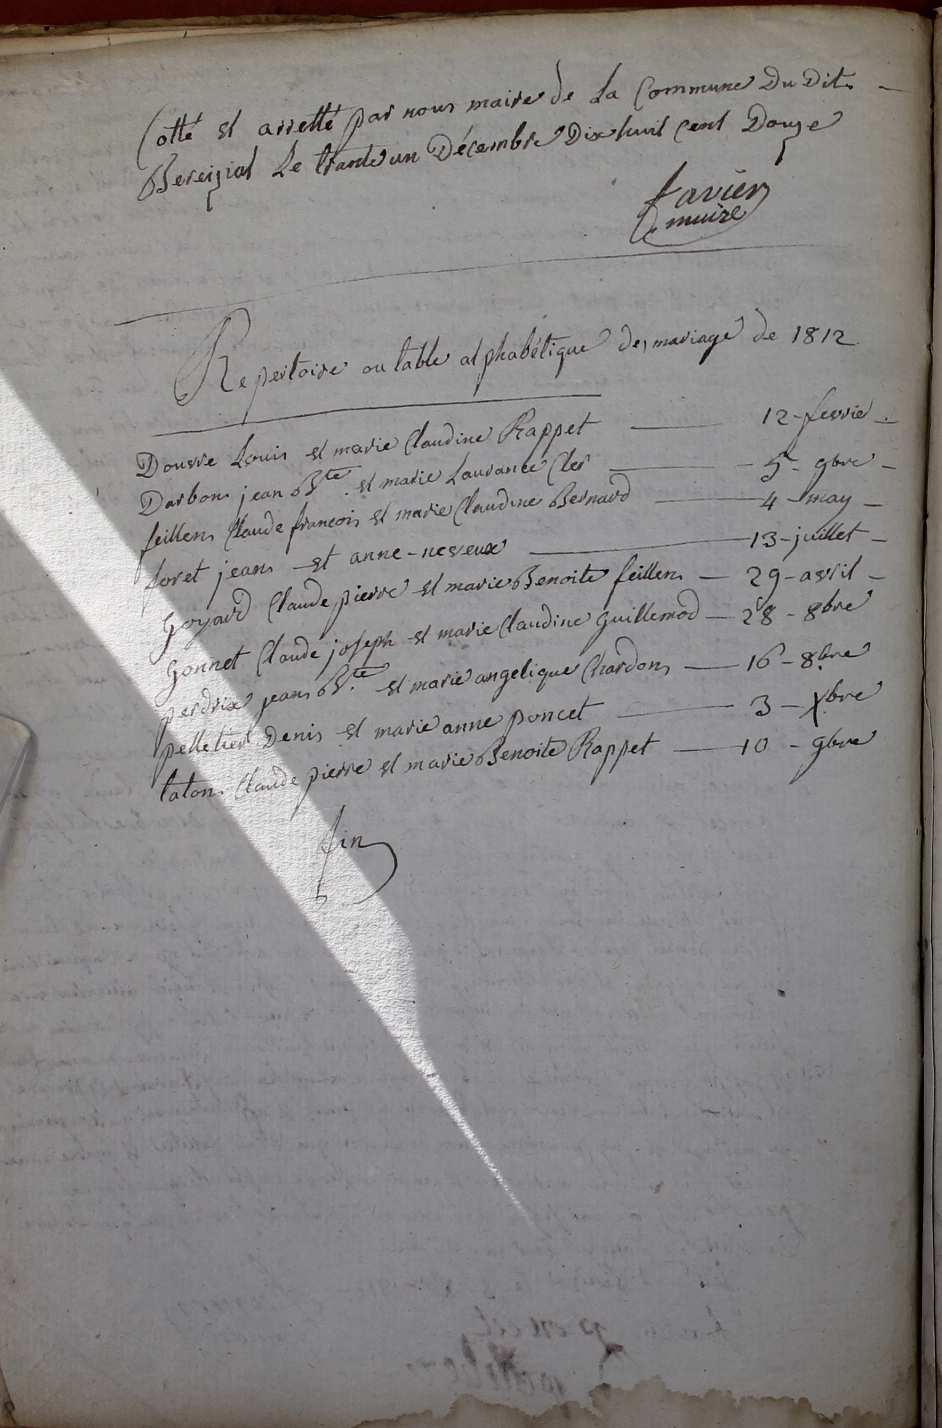 Cotté et arretté par nous maire de La Commune Du Dit
Bereiziat Le trante un Décembre Dix huit Cent Douze
favier
maire
Repertoire ou table alphabétique des mariage de 1812
Douvre Louis et marie Claudine Rappet — 12 - fevrie
Darbon jean Bte et marie Laurance Cler — 5 - 9bre
feillens Claude francois et marie Claudine Bernard — 4 - may
foret jean et anne neveux — 13 - juillet
Goyard Claude pierre et marie Benoite feillens — 29 - avril
Gonnet Claude joseph et marie Claudine Guillemod — 28 - 8bre
perdrix jean Bte et marie angelique Chardon — 16 - 8bre
pelletier Denis et marie anne poncet — 3 - Xbre
talon Claude pierre et marie Benoite Rappet — 10 - 9bre
fin